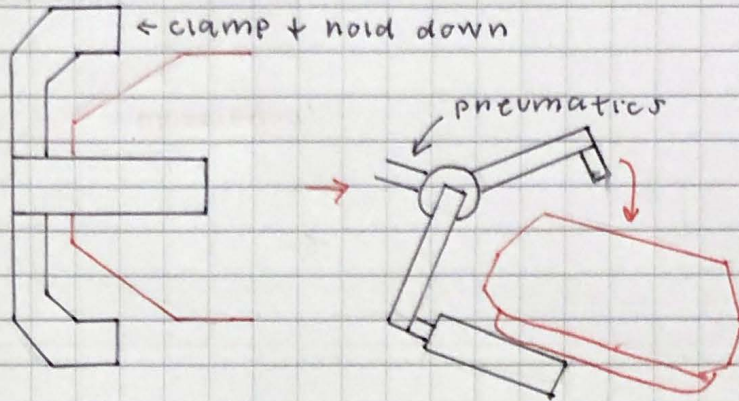 ← clamp + hold down
pneumatics